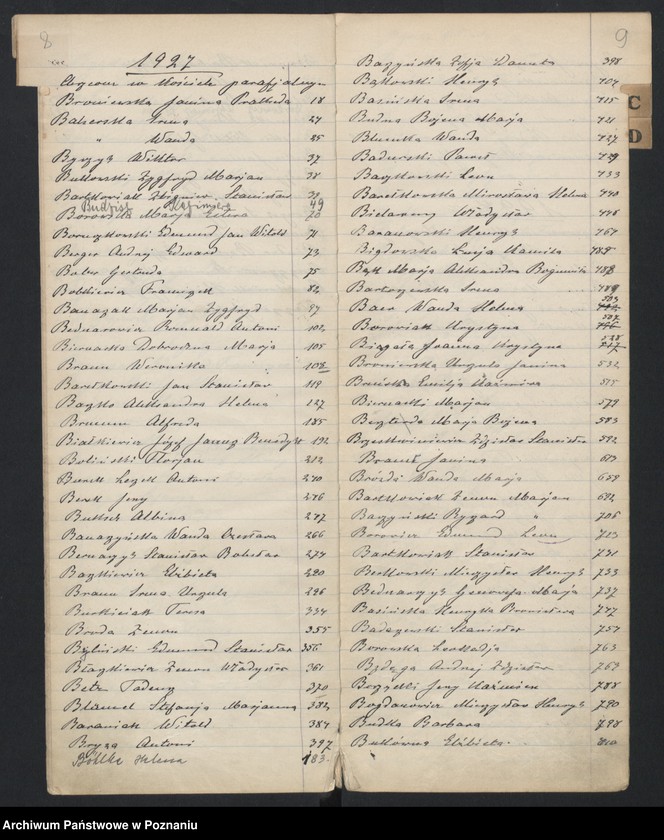 8
1927
chrzeone w Kościele parafjalnym
Broniewska Janina Pralheda 18
Balcerska Irena 24
" Wanda 25
Bzyzyk Wiktor 37
Butkowski Zygfryd Marjan 38
Bartkowiak Zbigniew Stanisław 39
Budzist Kazimiera 49
Borowska Marja 70
Boruczkowski Edmund Jan Witold 71
Berger Andrzej Edward 73
Bober Gertruda 75
Bobkiewicz Franciszek 82
Banaszak Marjan Zygfryd 97
Bednarowicz Romuald Antoni 102
Biernacka Dobrochna Marja 105
Braun Weronika 108
Bartkowski Jan Stanisław 119
Bączko Aleksandra Helena 127
Brunum Alfreda 185
Białkiewicz Józef Janusz Benedykt 192
Boliński Florjan 212
Leszek Antoni 240
Berk Jerzy 246
Albina 247
Banaszyńska Wanda Czesława 266
Bernazyk Stanisław Bolesław 274
Elżbieta 280
Braun Irena Urszula 296
Teresa 334
Broda Zenon 355
Byliński Edmund Stanisław 356
Błaszkiewicz Zenon Władysław 361
Betz Tadeusz 370
Stefanja Marjanna 382
Baraniak Witold 384
Bryza Antoni 397
Böttke Helena 183
9
Baszyńska Zofja Danuta 398
Bątkowski Henryk 704
Basińska Irena 715
Budna Bożena Marja 721
Wanda 727
Badurski Paweł 729
Bączkowski Leon 733
Bartkowska Mirosława Helena 740
Bielawny Władysław 748
Baranowski Henryk 767
Bigdowska Łucja Kamila
Bąk Marja Aleksandra Bogumiła 788
Bartoszewska Irena 789
Baer Wanda Helena 503
Borowiak Krystyna 507
Joanna Krystyna 528
Broniewska Urszula Janina 532
Brońska Emilja Kazimiera 575
Biernacki Marjan 579
Marja Bożena 583
Brzestwiniewicz Zdzisław Stanisław 592
Brandt Janina 613
Brózda Wanda Marja 659
Bartkowiak Zenon Marjan 692
Baszyński Ryszard " 705
Borowicz Edmund Leon 713
Bartkowiak Stanisław 731
Borkowski Mieczysław Henryk 733
Bednarzyk Genowefa Marja 737
Basińska Henryka Bronisława 747
Badaszewski Stanisław 757
Borowska Leokadja 763
Bzdęga Andrzej Zdzisław 769
Jerzy Kazimierz 788
Bogdanowicz Mieczysław Henryk 790
Budka Barbara 798
Butlówna Elżbieta 810
C
D
Archiwum Państwowe w Poznaniu